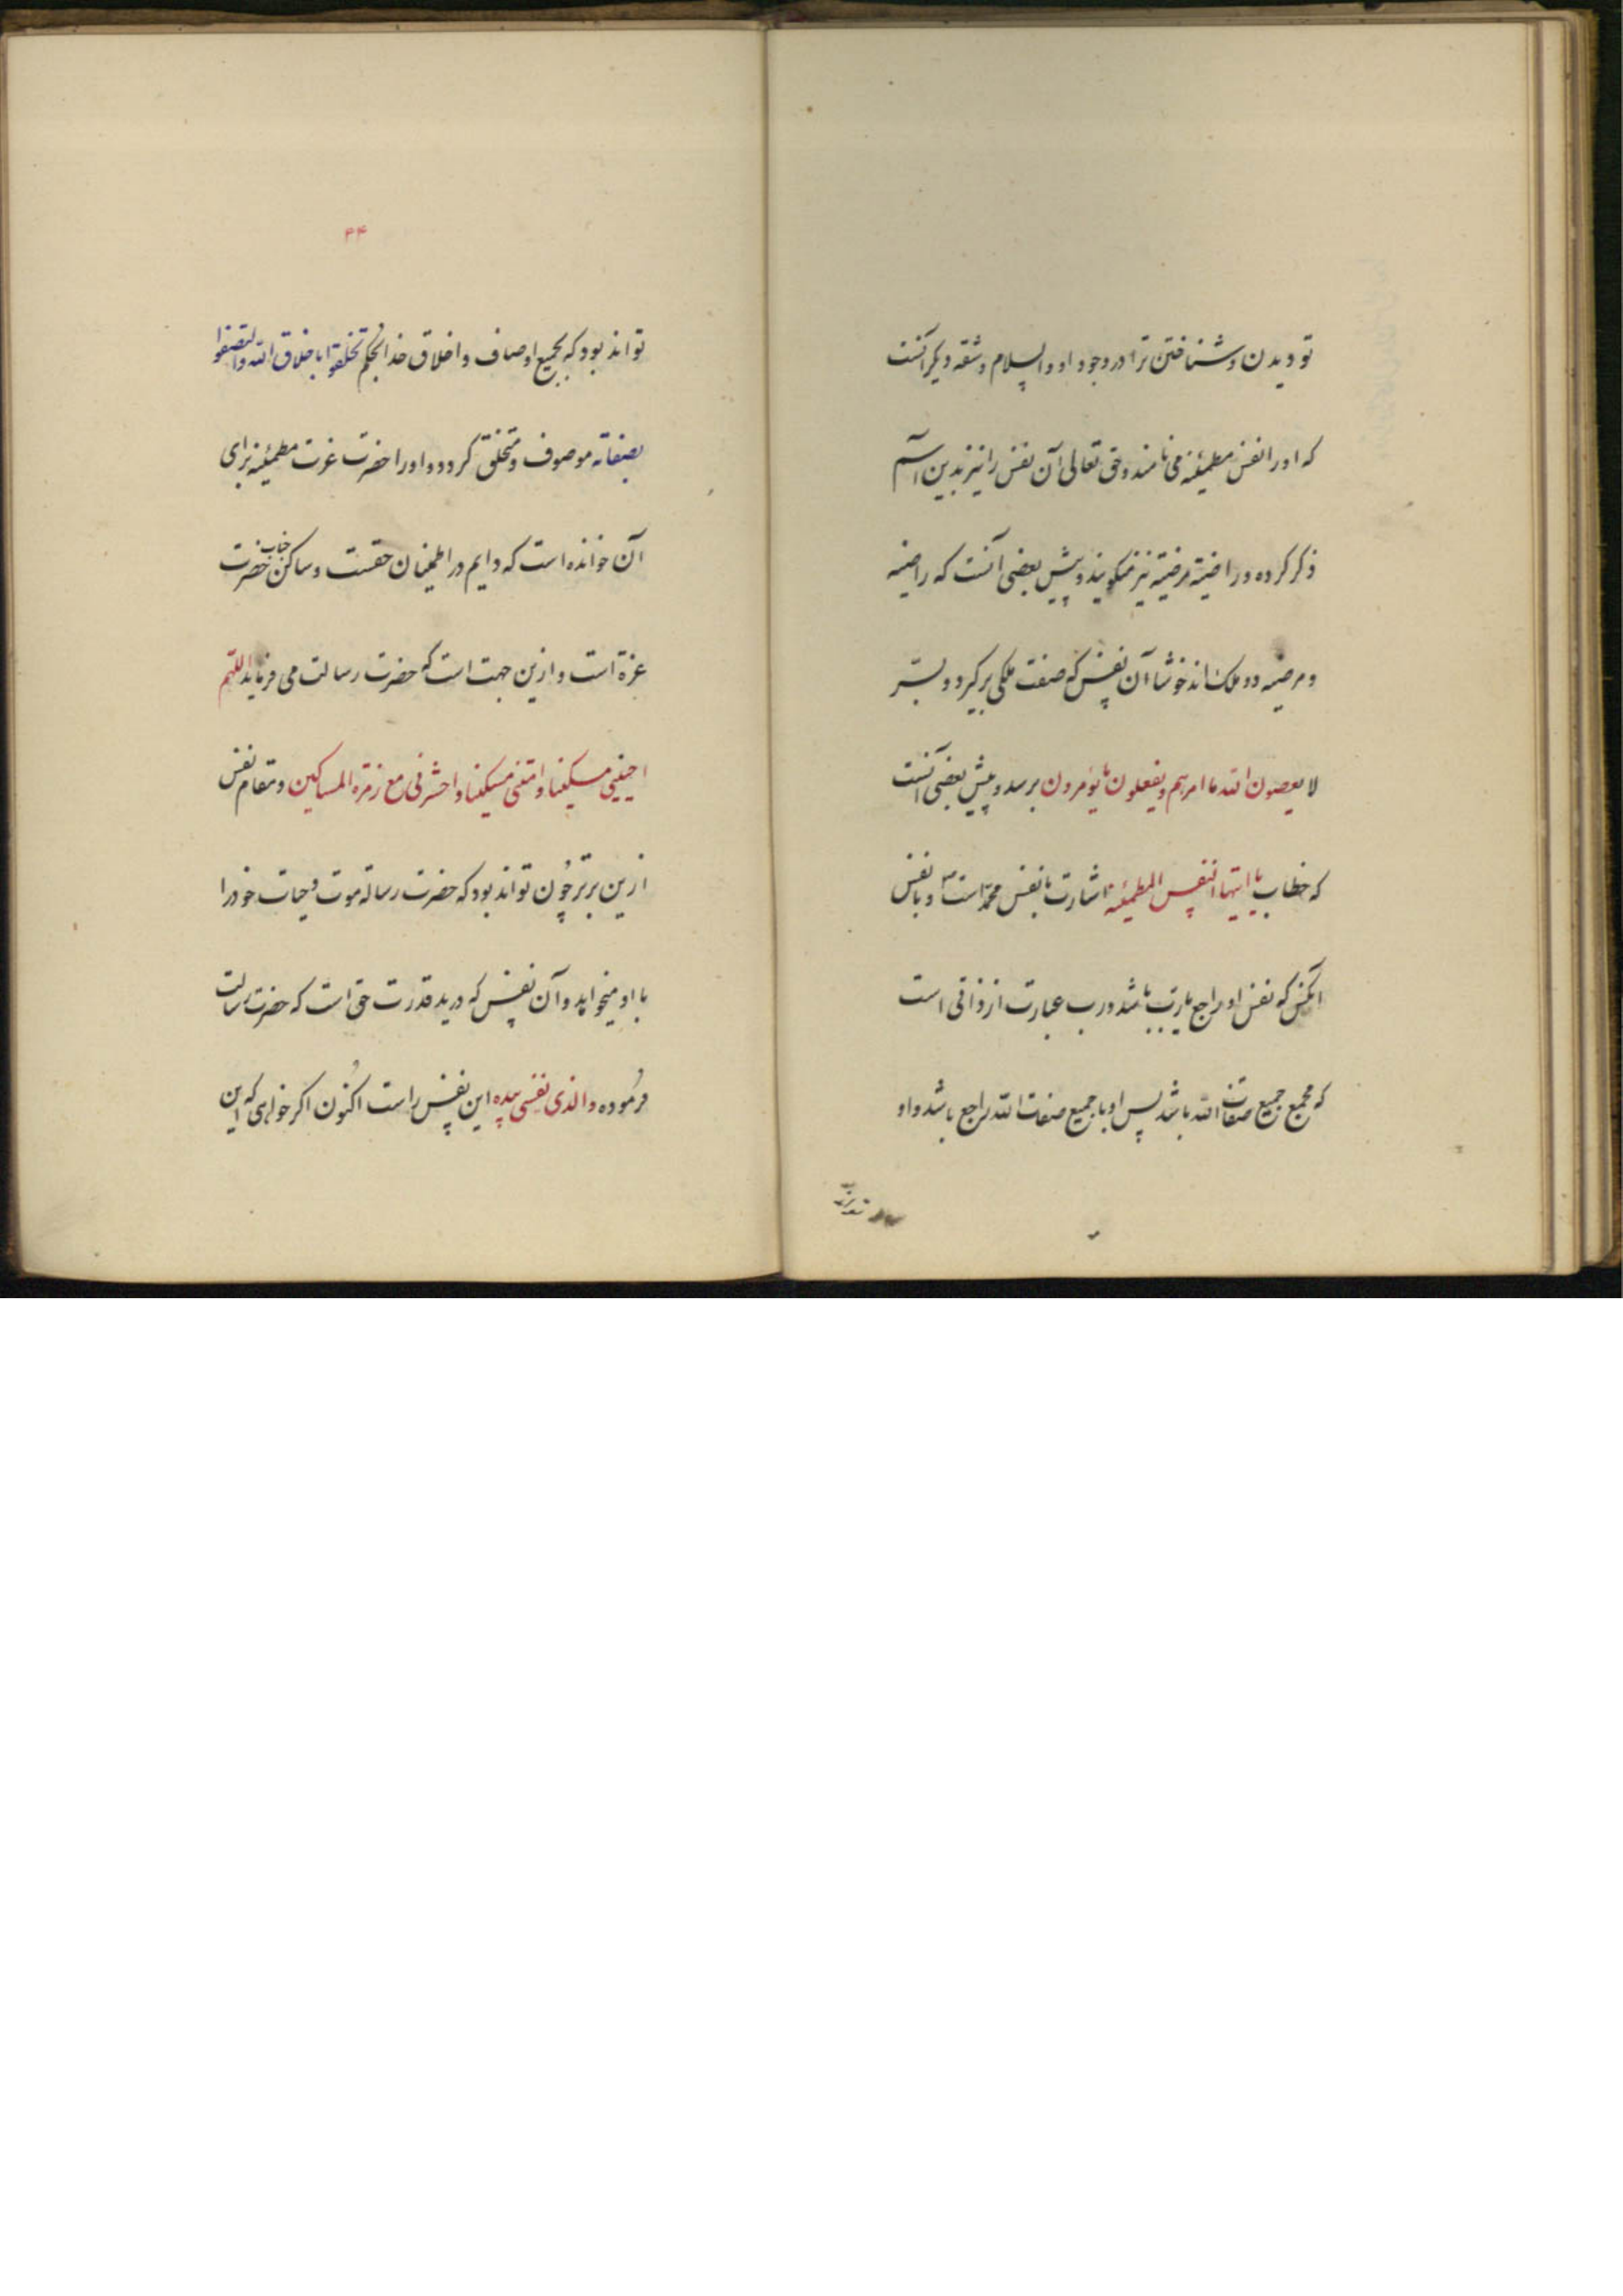 تو دیدن و شناختن ترا در وجود او والسلام و شقه دیکر آنست
که او را نفس مطمئنه می نامند و حق تعالی آن نفس را نیز بدین اسم
ذکر کرده و راضیة مرضیة نیز میکویند و پیش بعضی آنست که راضیه
و مرضیه دو ملک اند خوشا آن نفس که صفت ملکی بر کیرد و بسر
لا یعصون الله ما امرهم و یفعلون ما یؤمرون برسد و پیش بعضی آنست
که خطاب یا ایتها النفس المطمئنه اشارت با نفس محمد است و با نفس
آنکس که نفس او راجع با رب باشد و رب عبارت از ذاتی است
که مجمع جمیع صفات الله باشد پس او با جمیع صفات الله راجع باشد و او
۴۴
تواند بود که بجمیع اوصاف و اخلاق خدا بحکم تخلقوا باخلاق الله و اتصفوا
بصفاته موصوف و متخلق کردد و او را حضرت عزت مطمئنه برای
آن خوانده است که دایم در اطمینان حقست و ساکن جناب حضرت
عزة است و ازین جهت است که حضرت رسالت می فرماید اللهم
احینی مسکینا و امتنی مسکینا و احشرنی مع زمرة المساکین و مقام نفس
ازین برتر چون تواند بود که حضرت رسالة موت و حیات خود را
با او میخواهد و آن نفس که در ید قدرت حق است که حضرت رسالت
فرموده والذی نفسی بیده این نفس راست اکنون اکر خواهی که این